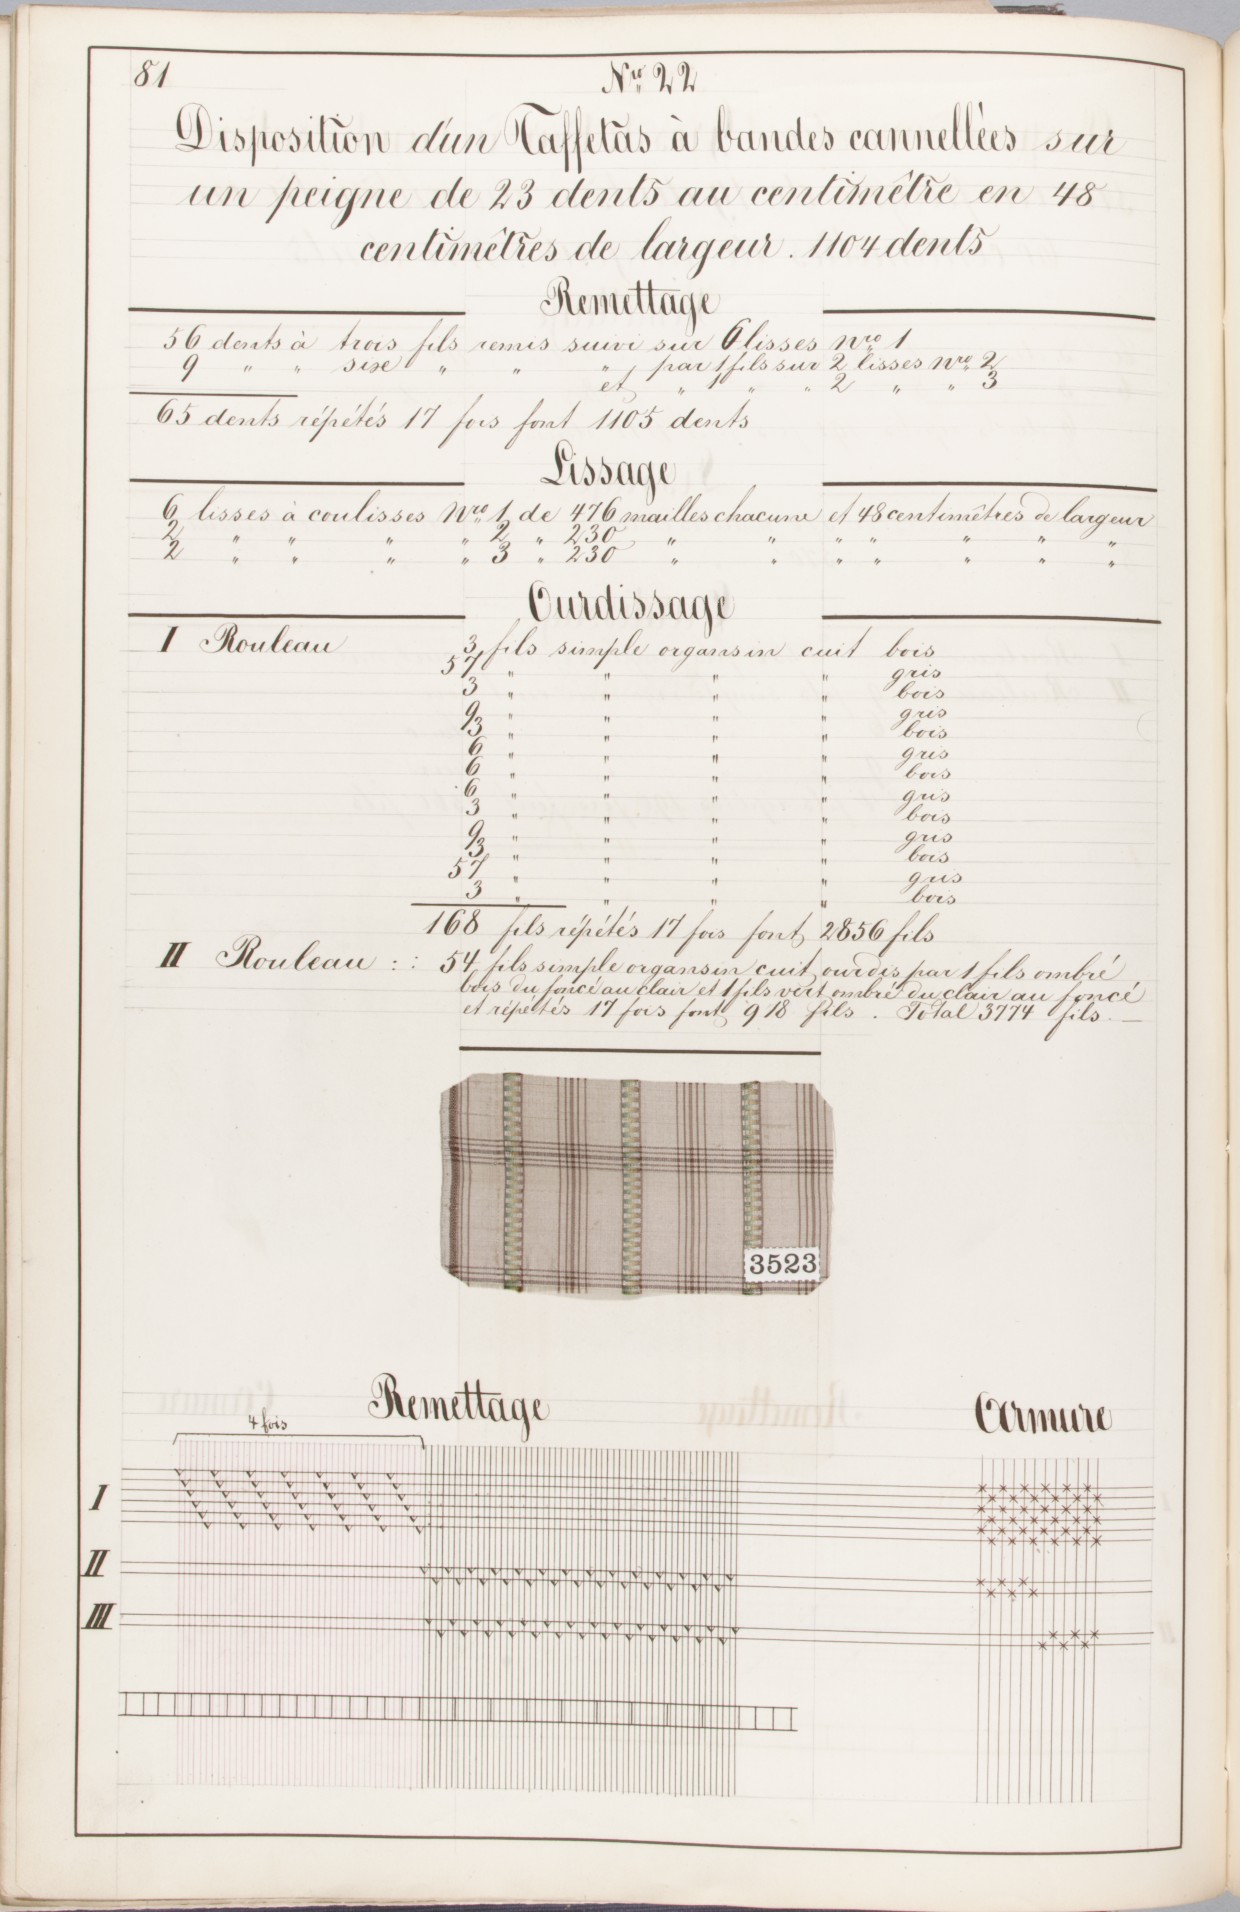 81
Nro 22
Disposition d'un Taffetas à bandes cannellées sur
un peigne de 23 dents au centimêtre en 48
centimêtres de largeur. 1104 dents
Remettage
56 dents à trois fils remis suivi sur 6 lisses Nro 1
9 " " sixe " " " par 1 fils sur 2 lisses Nro 2
et " 1 " " 2 " " 3
65 dents répétés 17 fois font 1105 dents
Lissage
6 lisses à coulisses Nro 1 de 476 mailles chacune et 48 centimêtres de largeur
2 " " " " 2 " 230 " " " " " " "
2 " " " " 3 " 230 " " " " " " "
Ourdissage
I Rouleau 3 fils simple organsin cuit bois
57 " " " " gris
3 " " " " bois
9 " " " " gris
3 " " " " bois
6 " " " " gris
6 " " " " bois
6 " " " " gris
3 " " " " bois
9 " " " " gris
3 " " " " bois
57 " " " " gris
3 " " " " bois
168 fils répétés 17 fois font 2856 fils
II Rouleau : : 54 fils simple organsin cuit ourdis par 1 fils ombré
bois du foncé au clair et 1 fils vert ombré du clair au foncé
et répétés 17 fois font 918 fils. Total 3774 fils. —
3523
Remettage
Armure
4 fois
I
II
III